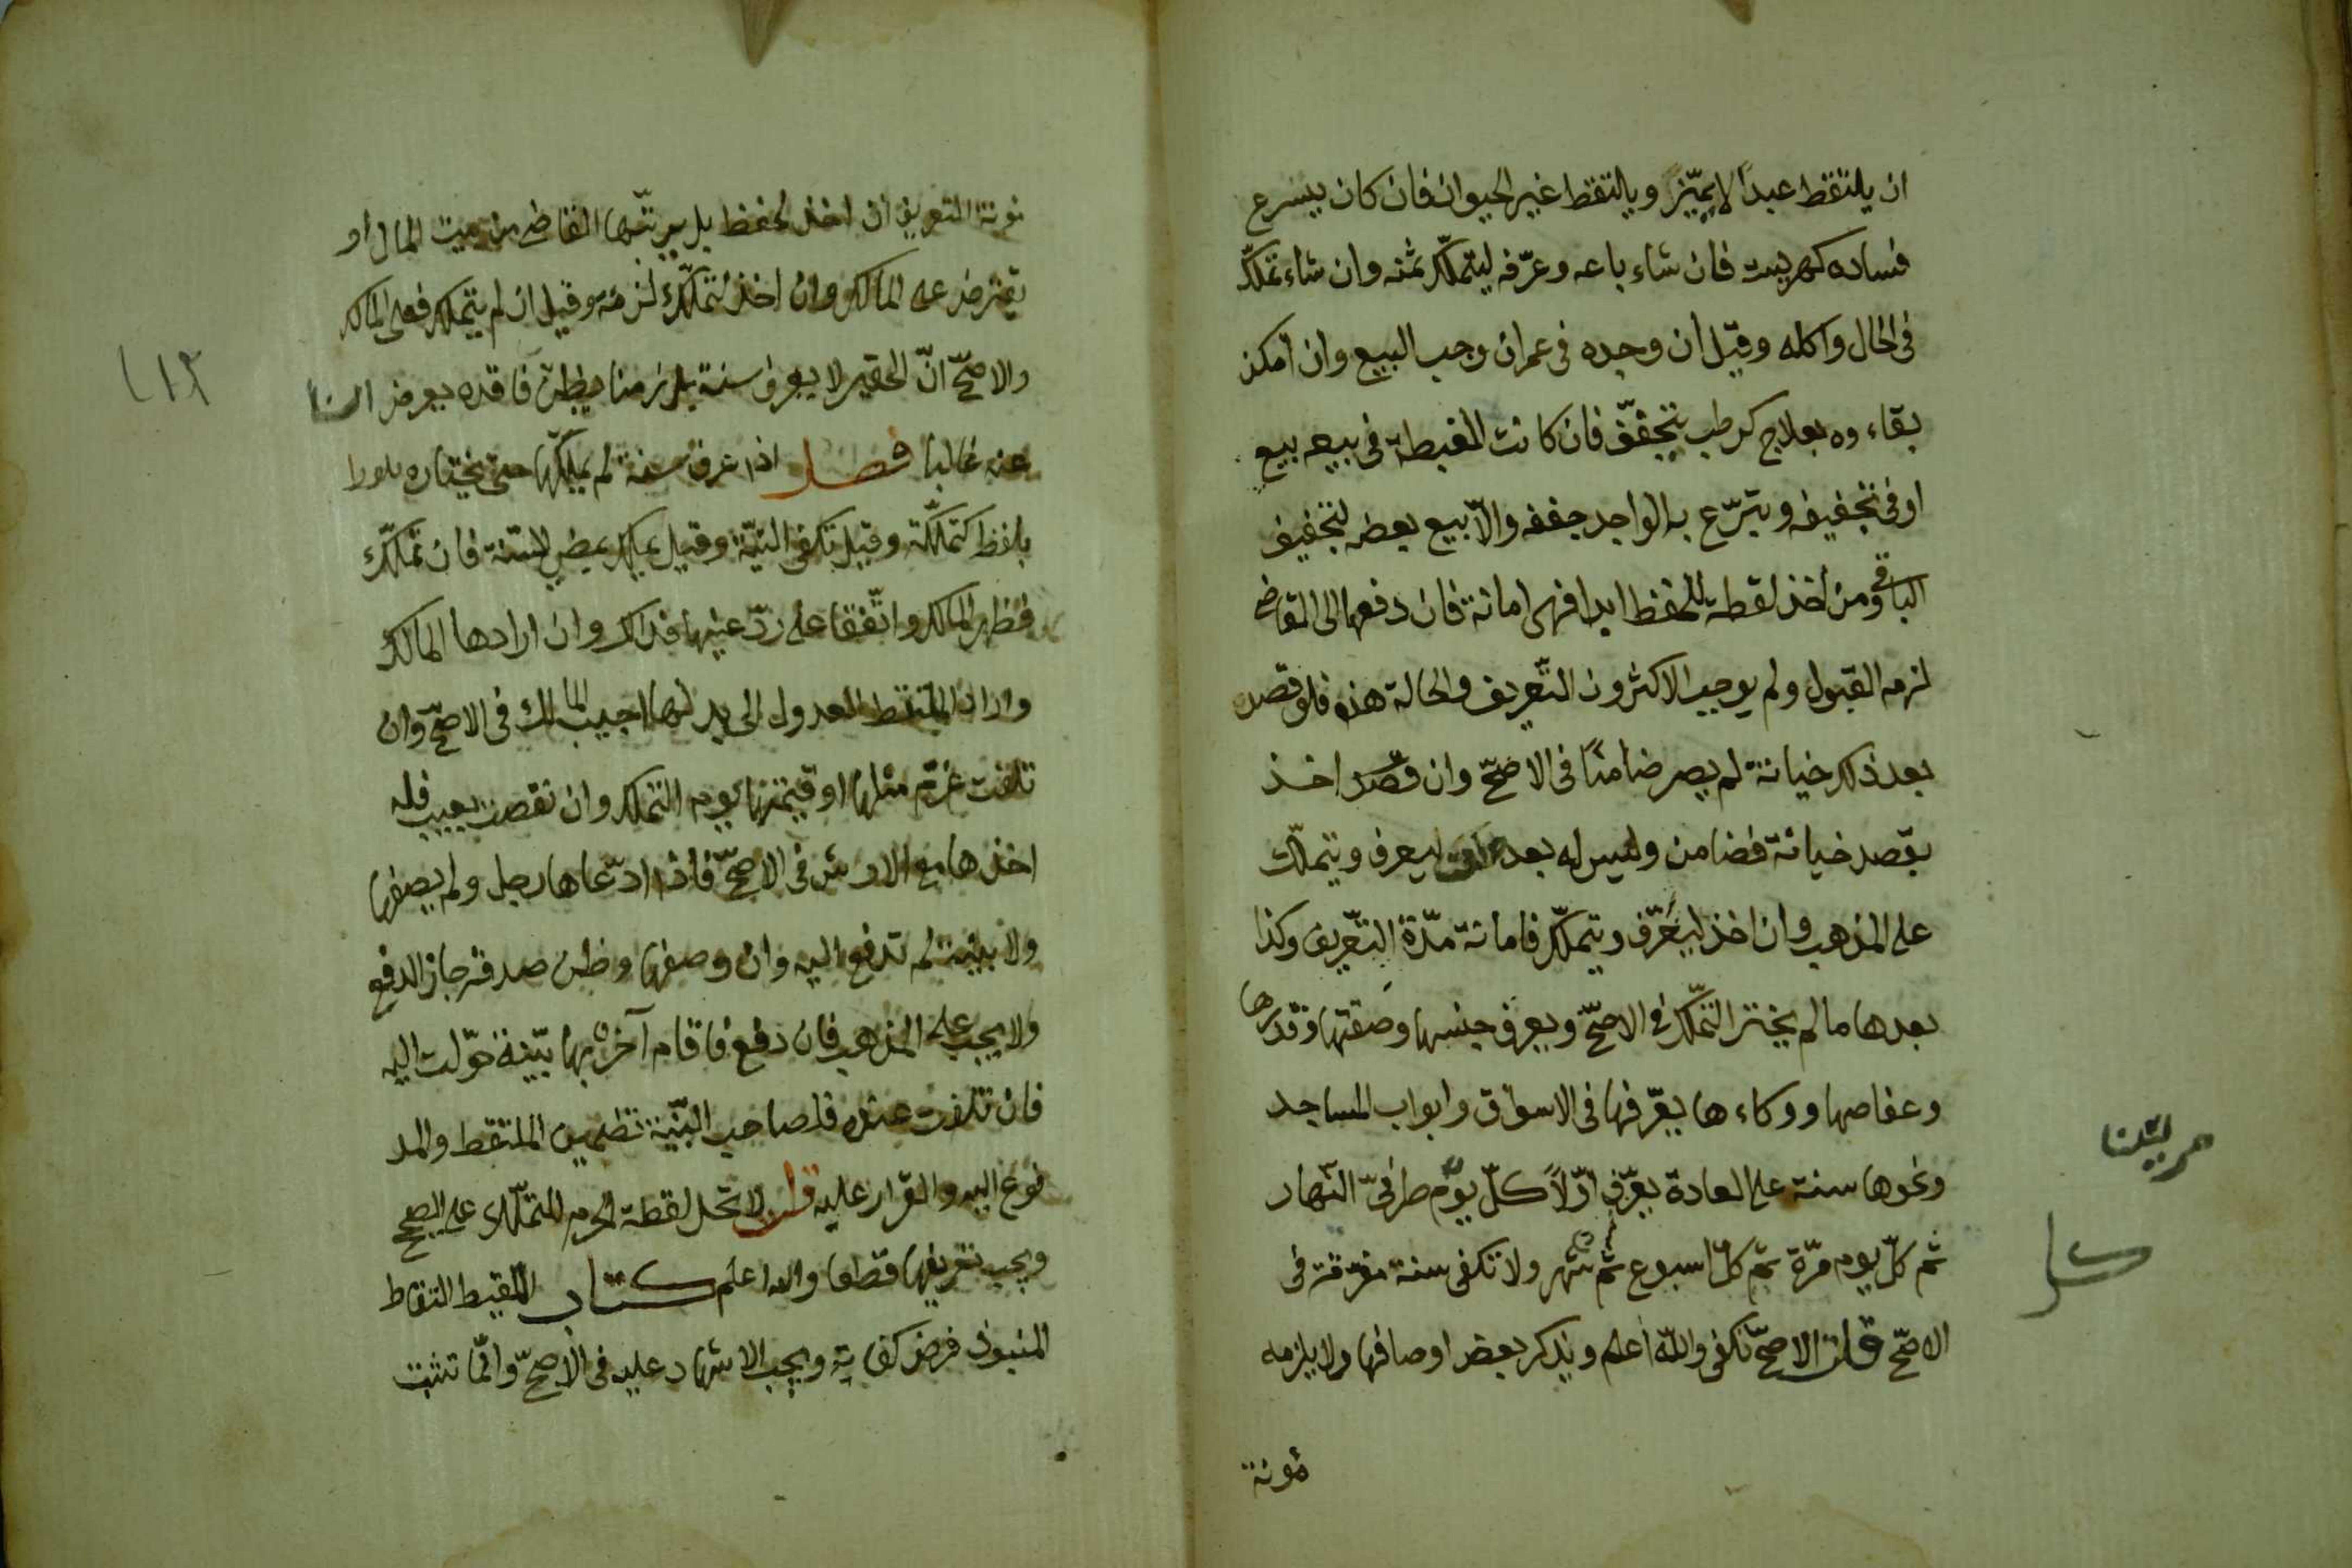 ان يلتقط عبدا لا يميّز ويلتقط غير الحيوان فان كان يسرع
فساده كهريسة فان شاء باعه وعرّفه ليتملّك ثمنه وان شاء تملكه
فى الحال واكله وقيل ان وجده فى عمران وجب البيع وان امكن
بقاءوه بعلاج كرطب يتجفّف فان كانت الغبطة فى بيعه بيع
او فى تجفيفه وتبرّع به الواجد جففه والّا بيع بعضه لتجفيف
الباقى ومن اخذ لقطة للحفظ ابدا فهى امانة فان دفعها الى القاضى
لزمه القبول ولم يوجب الاكثرون التعريف والحالة هذه فلو قصد
بعد ذلك خيانة لم يصر ضامنًا فى الاصحّ وان قصد اخذ
بقصد خيانة فضامن وليس له بعده ان يعرف ويتملّك
على المذهب وان اخذ ليعرّف ويتملّك فامانة مدّة التعريف وكذا
بعدها ما لم يختر التملّك فى الاصحّ ويعرف جنسها وصفتها وقدرها
وعفاصها ووكاءها يعّرفها فى الاسواق وابواب المساجد
ونحوها سنة على العادة يعرّف اوّلاً كلّ يوم طرفىّ النّهار
ثم كلّ يوم مرّة ثم كلّ اسبوع ثم شهر ولا تكفى سنة مفرقة فى
الاصحّ قلت الاصحّ تكفى والله أعلم ويذكر بعض اوصافها ولا يلزمه
مونة
كل
مونة التعريف ان اخذ لحفظ بل يرتّبها القاضى من بيت المال او
يقترض على المالك وان اخذ لتملّك لزمه وقيل ان لم يتملك فعلى المالك
والاصحّ انّ الحقير لا يعرف سنة بل زمنا يظنّ فاقده يعرض
عنه غالبا فصل اذا عرف سنة لم يملكها حتى يختاره
بلفظ كتملّكت وقيل تكفى النيّة وقيل يملك بمضى السنة فان تملّك
فظهر المالك واتّفقا على ردّ عينها فذاك وان ارادها المالك
واراد الملتقط العدول الى بدلها اجيب المالك فى الاصحّ وان
تلفت غرّم مثلها او قيمتها يوم التملك وان نقصت بعيب فله
اخذها مع الارش فى الاصحّ فاذا ادّعاها رجل ولم يصفها
ولا بينة لم تدفع اليه وان وصفها وظن صدقه جاز الدفع
ولا يجب على المذهب فان دفع فاقام آخر بها بيّنة حوّلت اليه
فان تلفت عنده فلصاحب البيّنة تضمين الملتقط والمد
فوع اليه والقرار عليه قلت لا تحل لقطة الحرم للتملّك على الصحيح
ويجب تعريفها قطعا والله اعلم كتاب اللقيط التقاط
المنبوذ فرض كفاية ويجب الاشهاد عليه فى الاصحّ وانّما تثبت